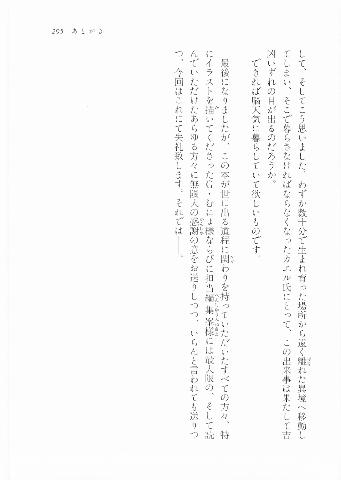 295 あとがき
して、そしてこう思いました。わずか数十分で生まれ育った場所から遠く離れた異境へ移動し
てしまい、そこで暮らさなければならなくなったカエル氏にとって、この出来事は果たして吉
凶いずれの目が出るのだろうか。
できれば脳天気に暮らしていて欲しいものです。
最後になりましたが、この本が世に出る過程に関わりを持っていただいたすべての方々、特
にイラストを描いてくださったG・むにょ様ならびに担当編集者様には最大限の、そして読
んでいただけたあらゆる方々に無限大の感謝の意をお送りしつつ、いらんと言われても送りつ
つ、今回はこれにて失礼致します。それでは――。